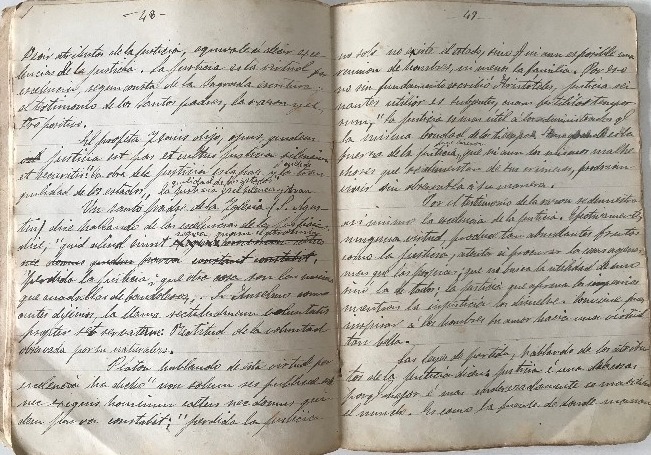 - 48 -
Decir atributos de la justicia, equivale á decir exce-
lencias de la justicia. La justicia es la virtud por
excelencia, segun consta de la Sagrada escritura:
el testimonio de los santos padres, la razon y el
El profeta Isaias dijo, opus
justicia est pax et cultus justicia silencium
et securitis: la obra de la justicia es la paz y la tran-
quilidad de los estados
Un santo padre de la Iglesia S. Agus-
tin, dice hablando de las excelencias de la justicia
dice, quid aliud sunt
perdida la justicia; que otra cosa son los reinos
que cuadrillas de bandoleros; S. Anselmo como
antes dijimos, la llama rectitudinem voluntatis
propter se servatam: Rectitud de la voluntad
observada por su naturaleza.
Platon hablando de esta virtud por
excelencia ha dicho non solum res publica
nec exiguus hominum coetus nec domus qui-
dem parva constabit; perdida la justicia
- 49 -
no solo no existe el estado, sino que ni aun es posible una
reunion de hombres, ni menos la familia. Por eso
no sin fundamento escribió Aristoteles, justicia
la justicia es mas util á los ciudadanos q
la misma bondad de los tiempos. es la
fuerza de la justicia, que ni aun los mismos malhe-
chores que se alimentan de sus crimenes, podrian
vivir sin observarla á su manera.
Por el testimonio de la razon se demuestra
asi mismo la excelencia de la justicia. Efectivamente,
ninguna virtud, produce tan abundantes frutos
como la justicia, atenta á procurar las cosas agenas
mas que las propias; que no busca la utilidad de uno
sinó la de todos; la justicia que afirma los imperios
mientras la injusticia los disuelve. Conviene pues,
inspirar á los hombres su amor hacia una virtud
tan bella.
Las leyes de partida, hablando de los atribu-
tos de la justicia dicen: justicia é una de las cosas
porque mejor é mas enderezadamente se mantiene
el mundo. Es como la fuente de donde manan